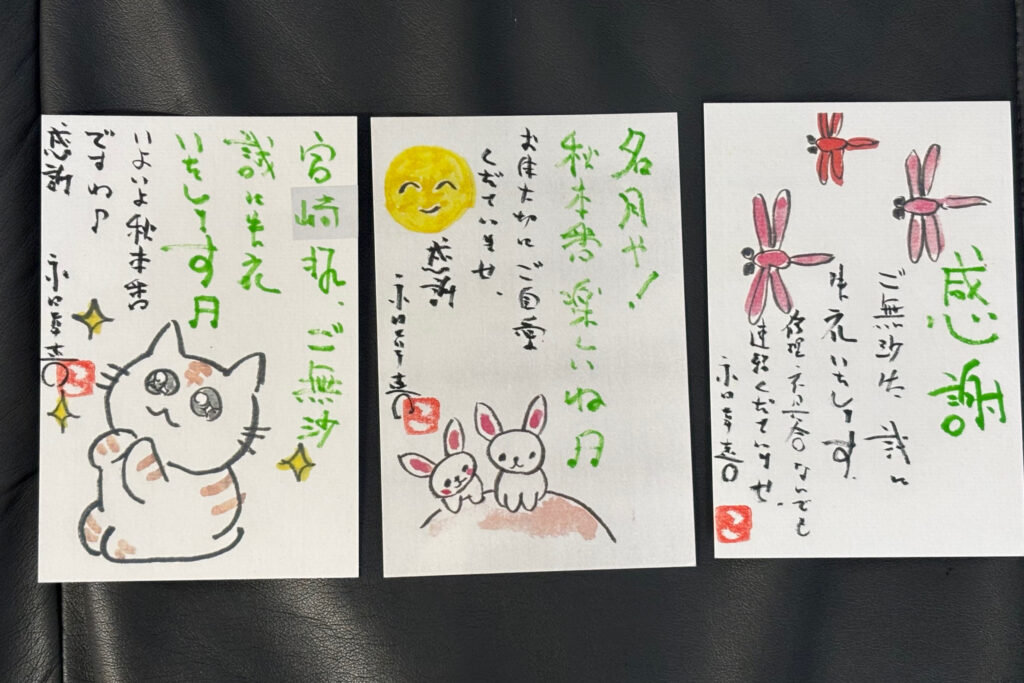 宮崎様、ご無沙
誠に失礼
いたします月
いよいよ秋本番
ですね♪
感謝
名月や!
秋本番楽しいね♫
お体大切にご自愛
くださいませ
感謝
感謝
ご無沙失誠に
失礼いたします
修理・不具合なんでも
連絡くださいませ